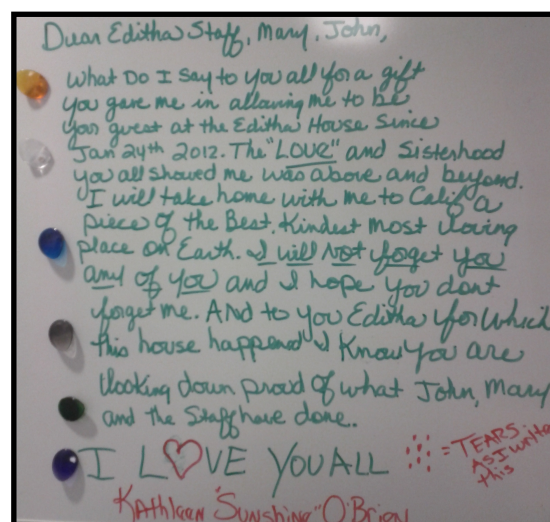 Dear Editha Staff, Mary, John,
What Do I Say to you all for a gift
you gave me in allowing me to be
your guest at the Editha House Since
Jan 24th 2012. The "LOVE" and Sisterhood
you all showed me was above and beyond.
I will take home with me to Calif a
piece of the Best, Kindest most loving
place on Earth. I will Not forget you
any of you and I hope you dont
forget me. And to you Editha for Which
this house happened I Know You are
looking down proud of what John, Mary
and the Staff have done.
I L♡VE YOU ALL
= TEARS
AS I write
this
Kathleen "Sunshine" O'Brien